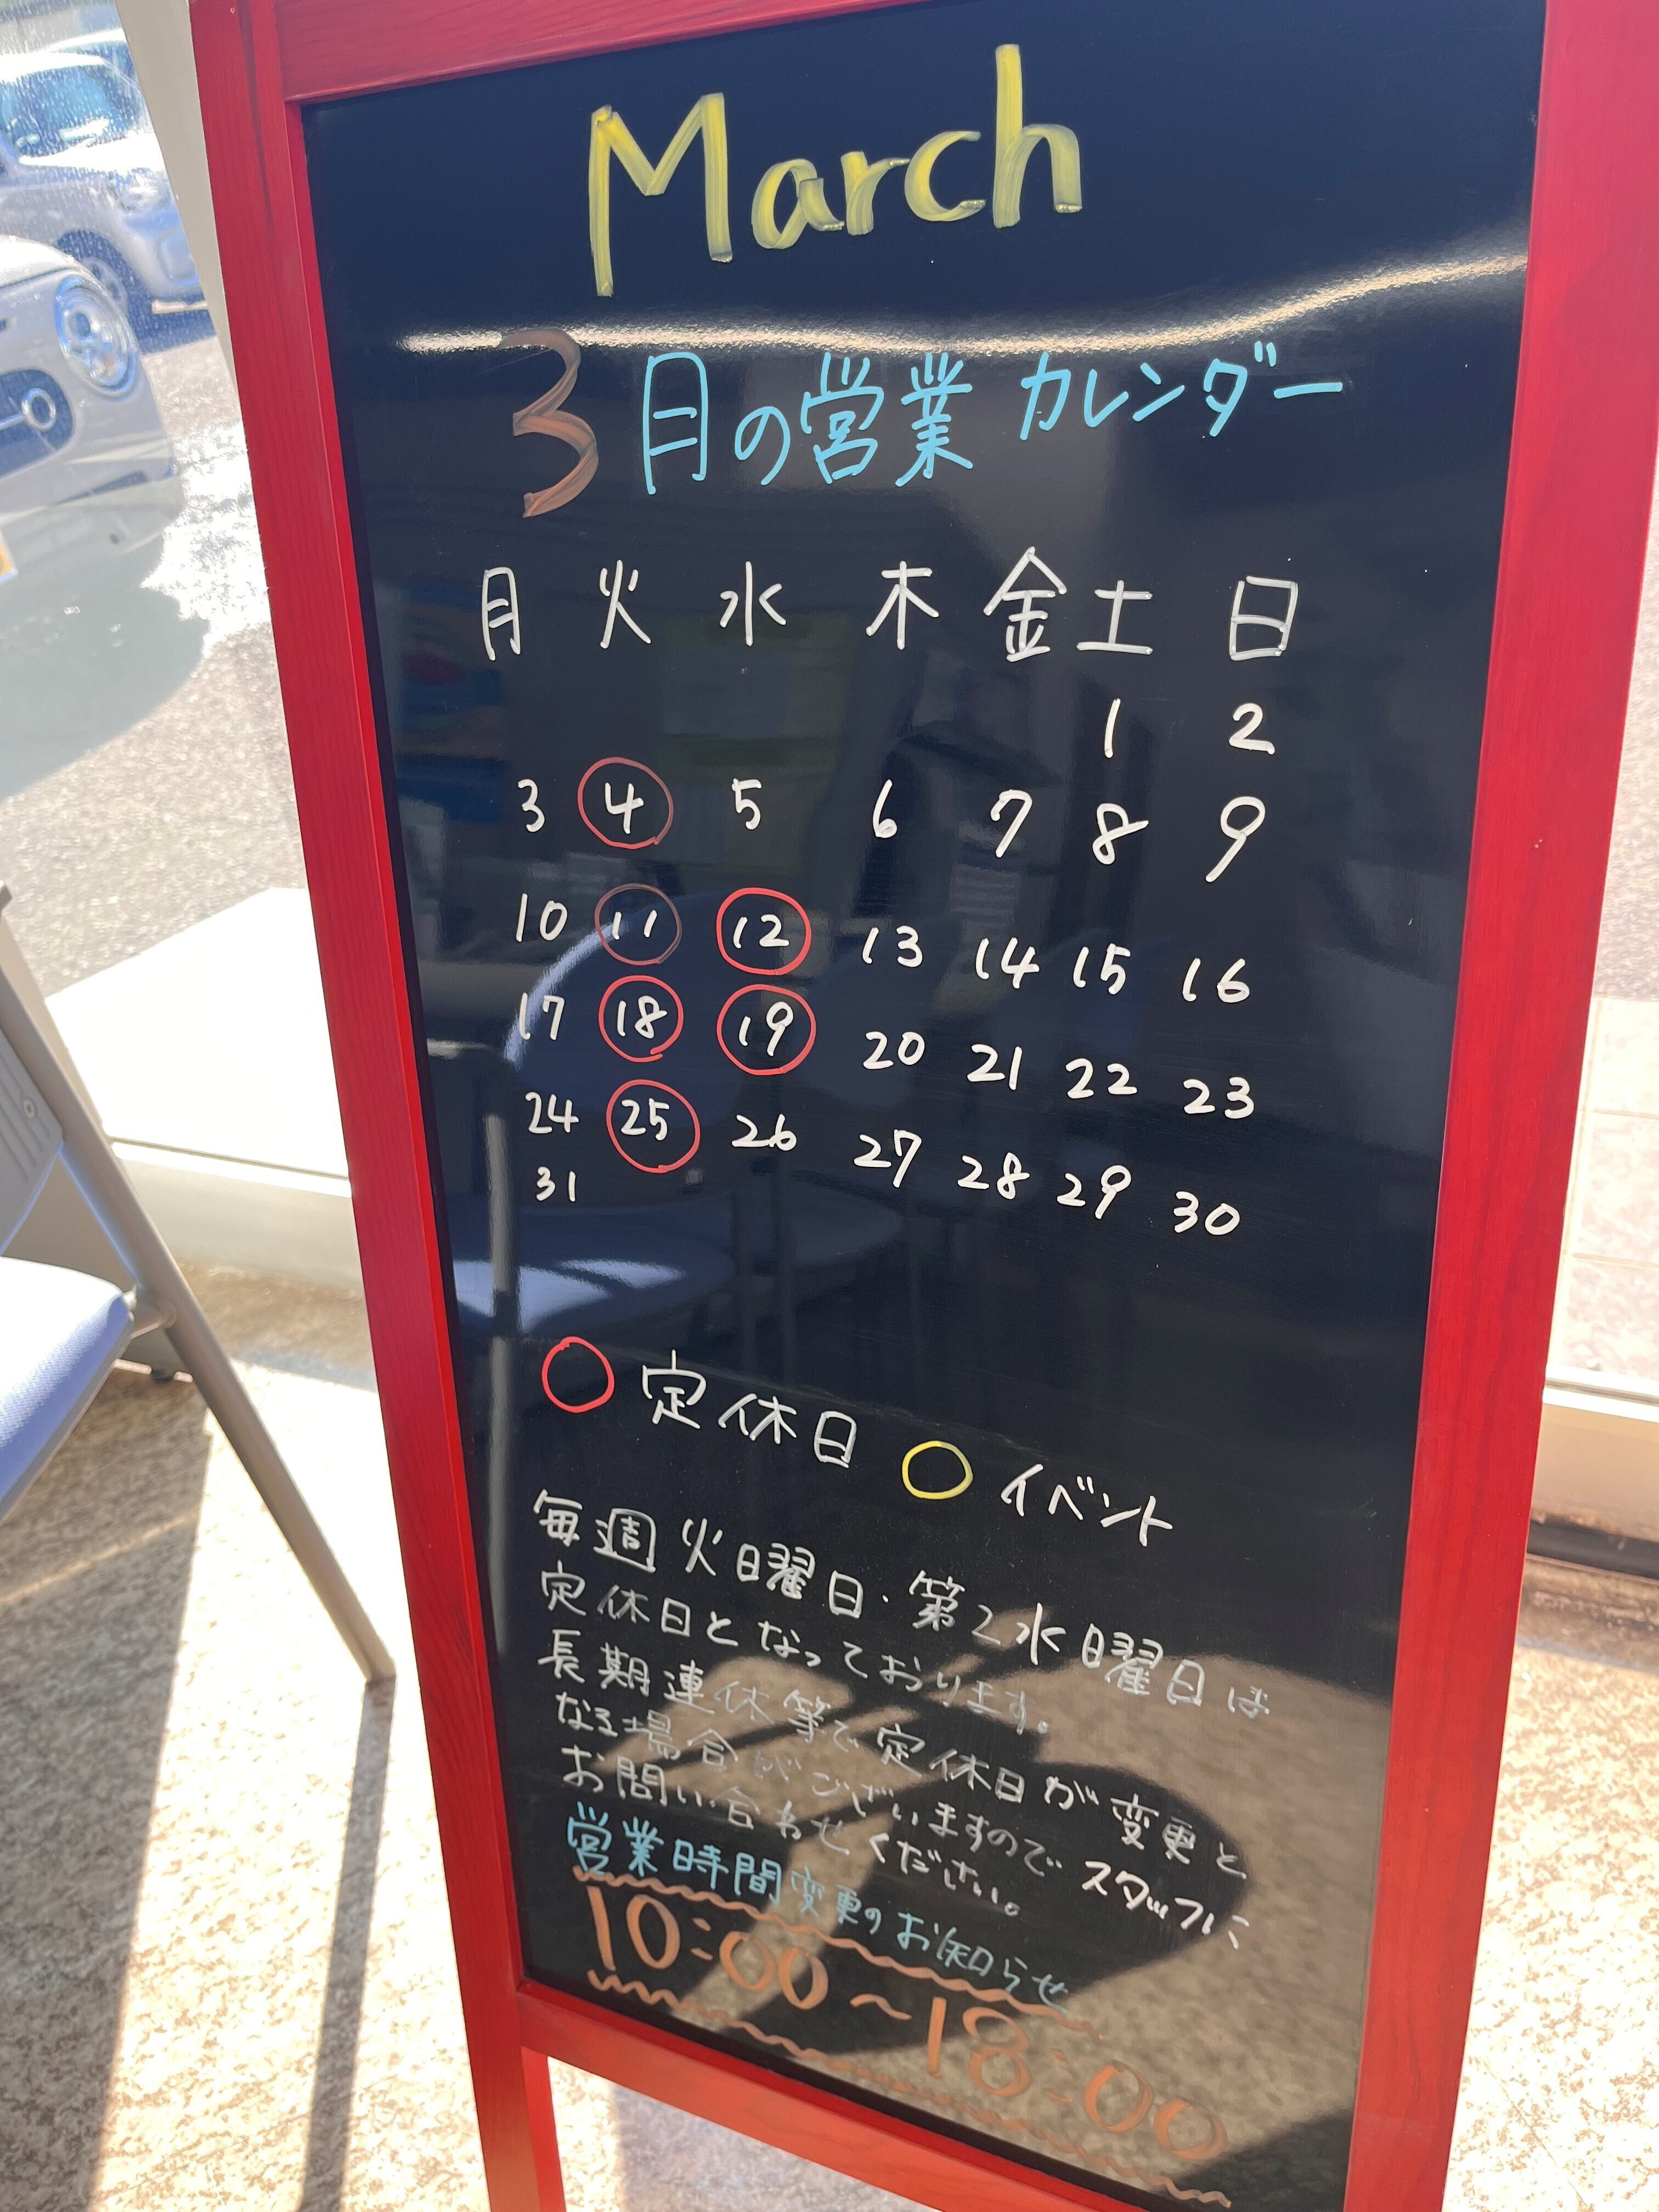 March
3月の営業カレンダー
月 火 水 木 金 土 日
1 2
3 4 5 6 7 8 9
10 11 12 13 14 15 16
17 18 19 20 21 22 23
24 25 26 27 28 29 30
31
定休日 イベント
毎週火曜日・第2水曜日は
定休日となっております。
長期連休等で定休日が変更と
なる場合がございますのでスタッフに
お問い合わせください。
営業時間変更のお知らせ
10:00～18:00